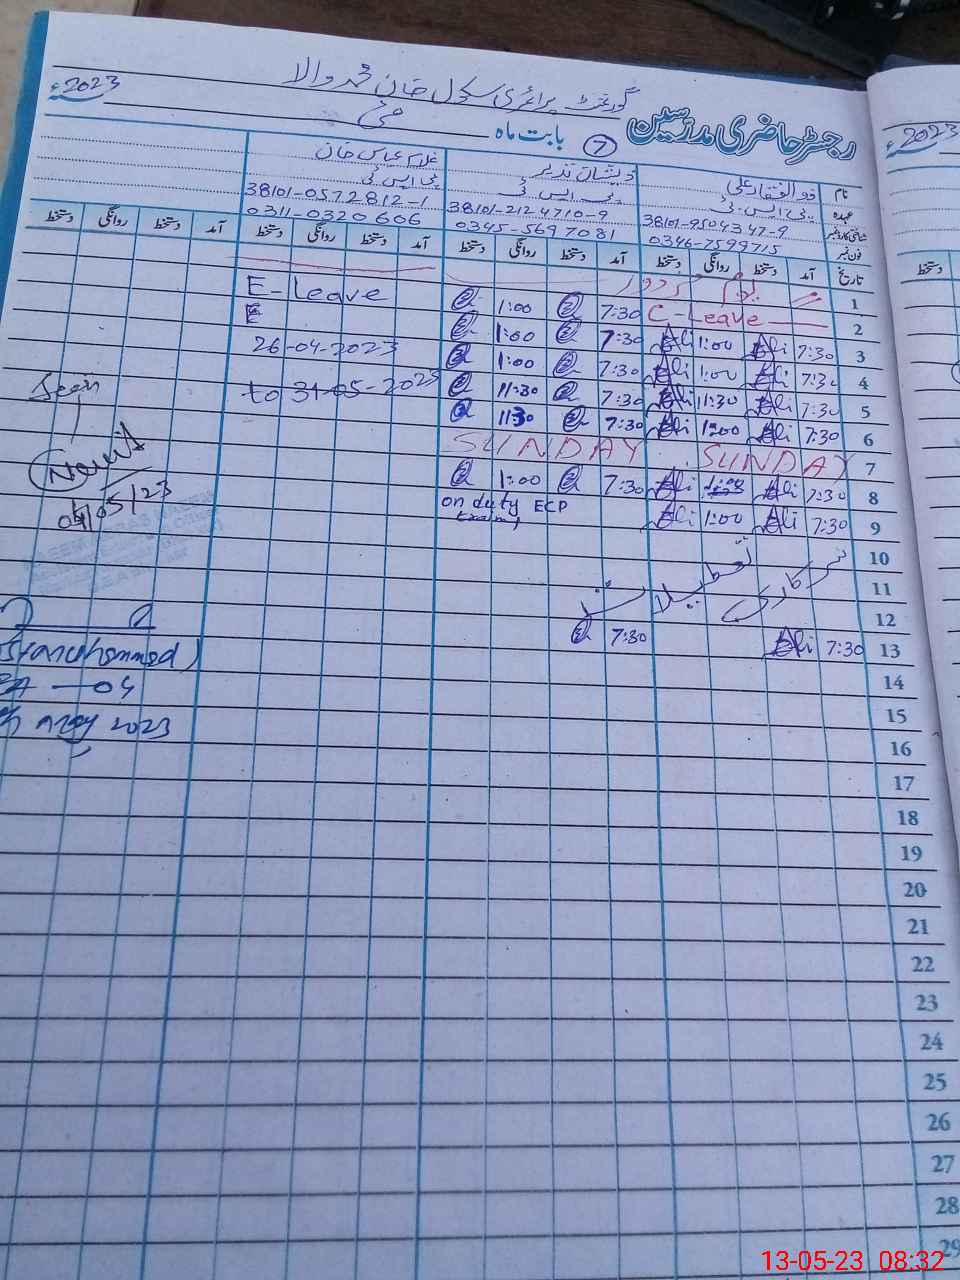 گورنمنٹ پرائمری سکول خان محمد والا
رجسٹر حاضری مدرسین ⑦ بابت ماہ مئی 2023ء
نام ذوالفقار علی ذیشان نذیر غلام عباس خان
عہدہ پی ایس ٹی پی ایس ٹی پی ایس ٹی
شناختی کارڈ نمبر 38101-9504347-9 38101-2124710-9 38101-0572812-1
فون نمبر 0346-7599715 0345-5697081 0311-0320606
تاریخ آمد دستخط روانگی دستخط آمد دستخط روانگی دستخط آمد دستخط روانگی دستخط آمد دستخط روانگی دستخط
1 یوم مزدور
2 C-Leave 7:30 1:00 E-Leave
3 7:30 Ali 1:00 Ali 7:30 1:00 E
4 7:30 Ali 1:00 Ali 7:30 1:00 26-04-2023
5 7:30 Ali 11:30 Ali 7:30 11:30 to 31-05-2023
6 7:30 Ali 1:00 Ali 7:30 11:30
7 SUNDAY SUNDAY
8 7:30 Ali 1:00 Ali 7:30 1:00
9 7:30 Ali 1:00 Ali on duty ECP
Exam
10
11 سرکاری تعطیلات
12
13 7:30 Ali 7:30
14
15
16
17
18
19
20
21
22
23
24
25
26
27
28
29
Seen
04/05/23
04
may 2023
2023ء
دستخط
13-05-23 08:32